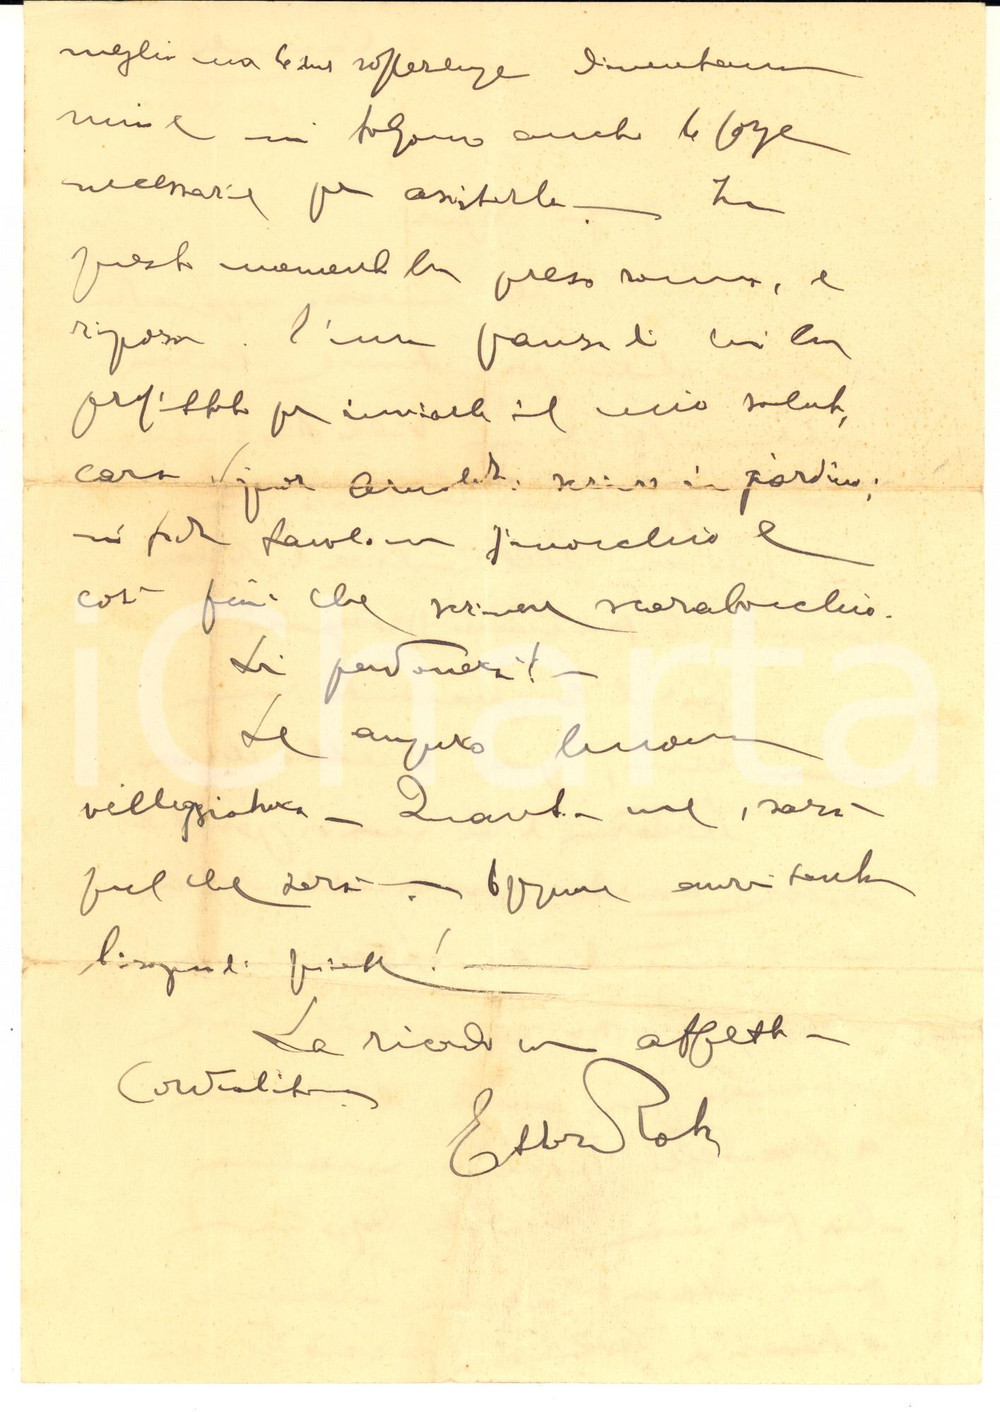 meglio ma le sue sofferenze diventano
mie e mi tolgono anche le forze
necessarie per assisterla — In
questo momento ha preso sonno, e
riposa. È una pausa di cui ho
profittato per inviarle il mio saluto,
cara Signora scrivo in giardino;
mi fa da tavolo un ginocchio e
così più che scrivere scarabocchio.
Mi perdonerà! —
Le auguro buona
villeggiatura — Quanto a me, sarà
quel che sarà — Eppure avrei tanto
bisogno di quiete! —
La ricordo con affettuosa
Cordialità
Ettore
iCharta